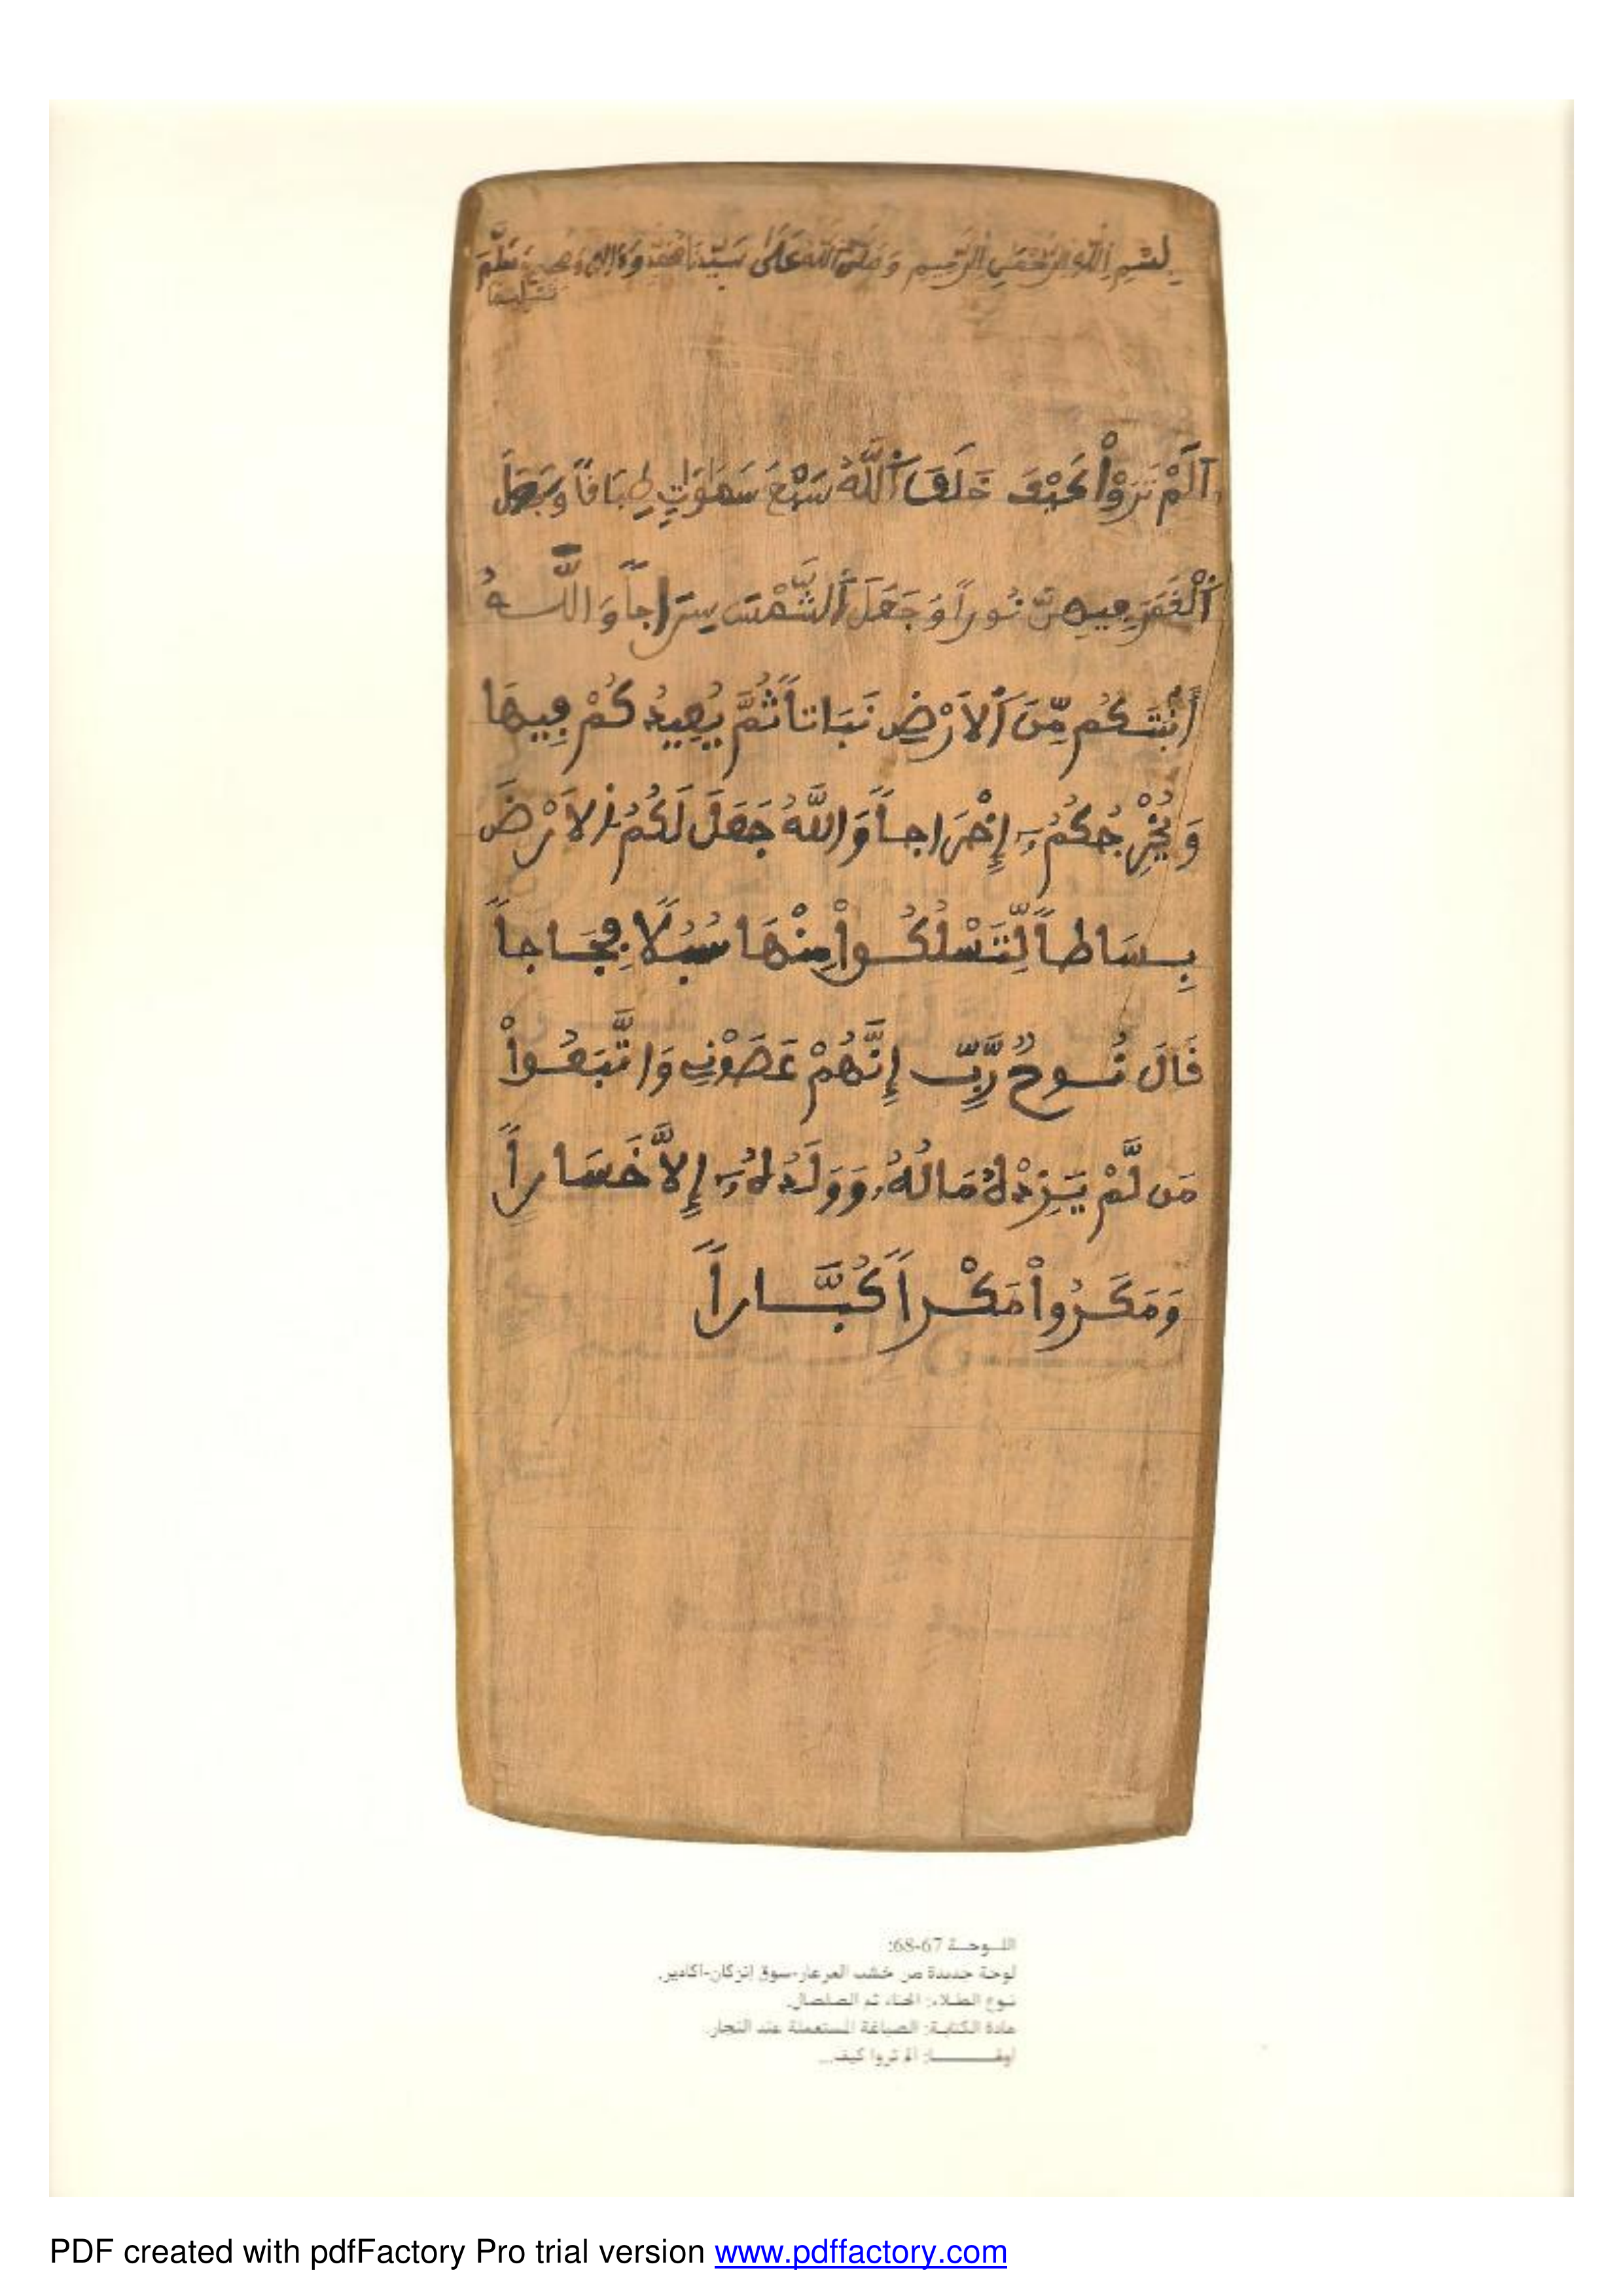 بِسْمِ اللَّهِ الرَّحْمَٰنِ الرَّحِيمِ وَصَلَّى اللَّهُ عَلَى سَيِّدِنَا مُحَمَّدٍ وَءَالِهِ وَصَحْبِهِ وَسَلَّمَ
تَسْلِيمًا
اَلَمْ تَرَوْاْ كَيْفَ خَلَقَ اَللَّهُ سَبْعَ سَمَٰوَٰتٍ طِبَاقاً وَجَعَلَ
اَلْقَمَرَ فِيهِنَّ نُوراً وَجَعَلَ اَلشَّمْسَ سِرَاجاً وَاللَّهُ
أَنۢبَتَكُم مِّنَ اَلَارْضِ نَبَاتاً ثُمَّ يُعِيدُكُمْ فِيهَا
وَيُخْرِجُكُمُۥٓ إِخْرَاجاً وَاللَّهُ جَعَلَ لَكُمُ اُلَارْضَ
بِسَاطاً لِّتَسْلُكُواْ مِنْهَا سُبُلًا فِجَاجاً
قَالَ نُوحٌ رَّبِّ إِنَّهُمْ عَصَوْنِي وَاتَّبَعُواْ
مَن لَّمْ يَزِدْهُ مَالُهُۥ وَوَلَدُهُۥٓ إِلَّا خَسَاراً
وَمَكَرُواْ مَكْراً كُبَّاراً
اللوحة 67-68:
لوحة جديدة من خشب العرعار-سوق إنزكان-أكادير.
نوع الطلاء: الحناء ثم الصلصال.
مادة الكتابة: الصباغة المستعملة عند النجار.
أولها: ألم تروا كيف...
PDF created with pdfFactory Pro trial version www.pdffactory.com